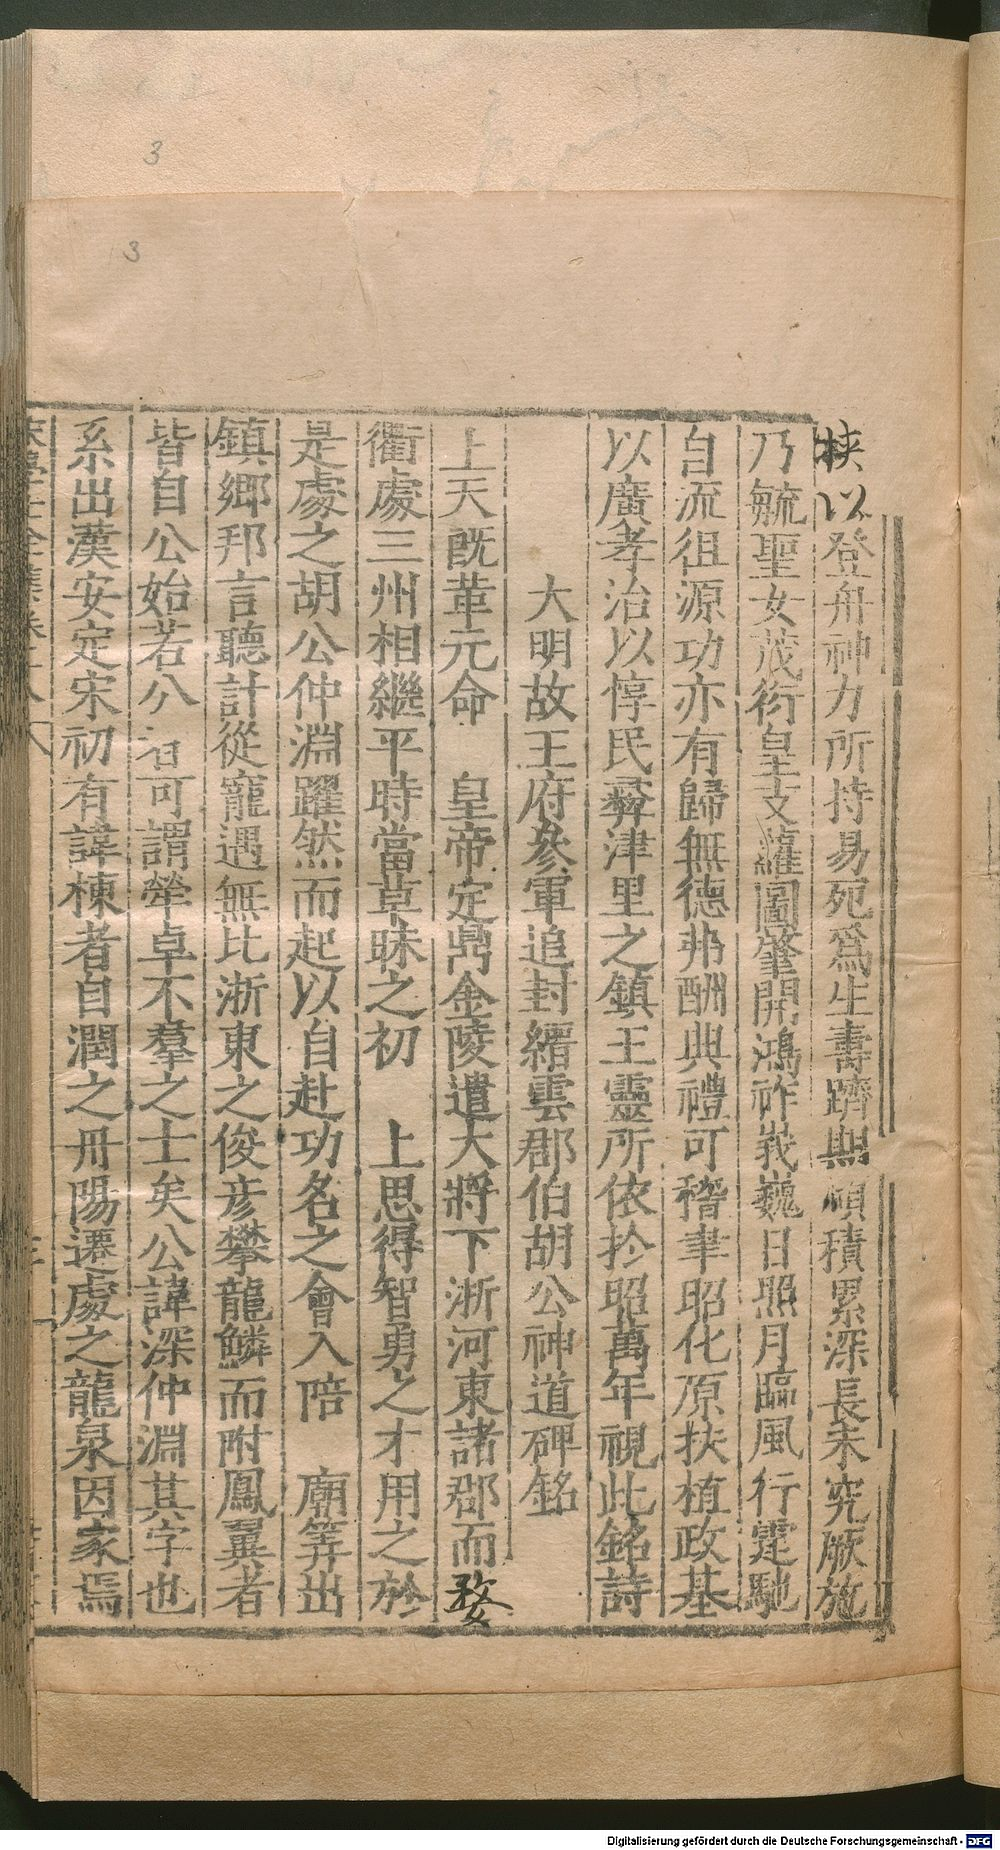 挟以登舟神力所持易死爲生壽躋期頤積累深長未究厥施
乃毓聖女茂衍皇支蘿圖肇開鴻祚峩巍日照月臨風行霆馳
自流徂源功亦有歸無德弗酬典禮可稽聿昭化原扶植政基
以廣孝治以惇民彛津里之鎮王靈所依扵昭萬年視此銘詩
大明故王府參軍追封縉雲郡伯胡公神道碑銘
上天旣革元命 皇帝定鼎金陵遣大將下浙河東諸郡而婺
衢處三州相繼平時當草昧之初 上思得智勇之才用之於
是處之胡公仲淵躍然而起以自赴功名之會入陪 廟筭出
鎮鄉邦言聽計從寵遇無比浙東之俊彦攀龍鱗而附鳳翼者
皆自公始若公者可謂犖卓不羣之士矣公諱深仲淵其字也
系出漢安定宋初有諱棟者自潤之丹陽遷處之龍泉因家焉
3
3
Digitalisierung gefördert durch die Deutsche Forschungsgemeinschaft - DFG